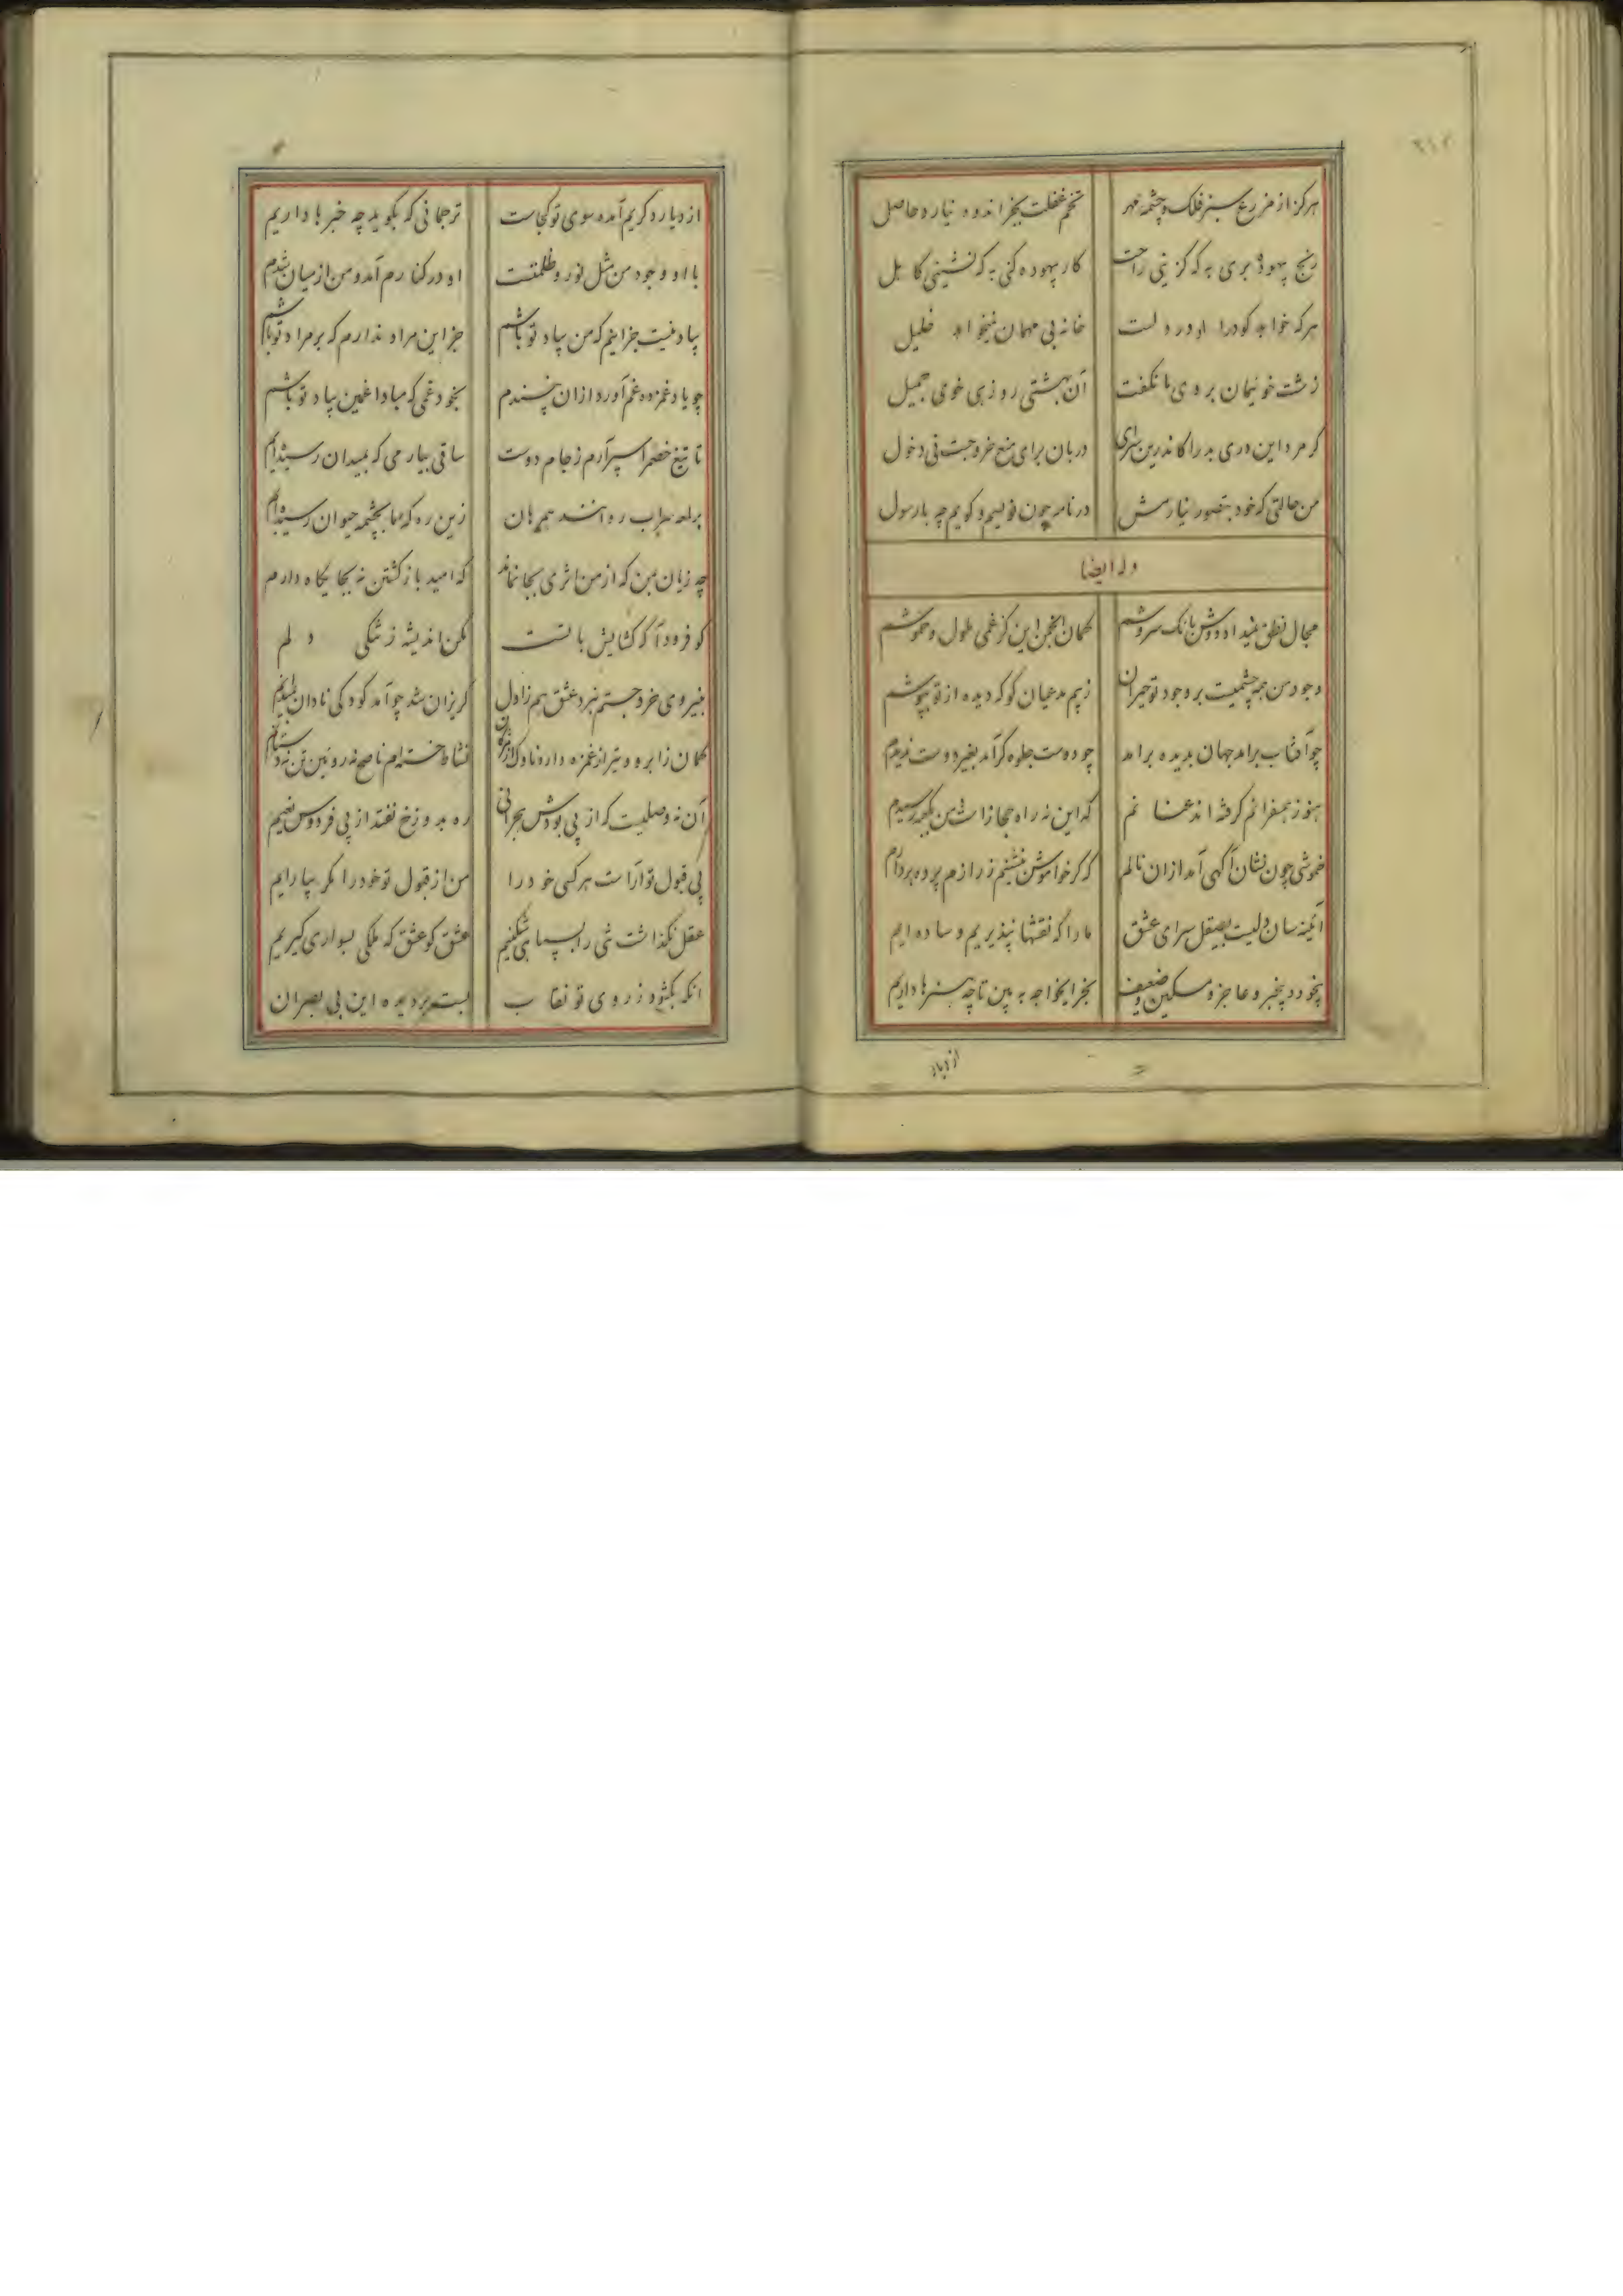 هرکز از مزرع سبز فلک و چشمهٔ مهر تخم غفلت بجز اندوه نیارد حاصل
رنج بیهوده بری به که کزینی راحت کار بیهوده کنی به که نشینی کاهل
هرکه خواهد کو درا او در دلست خانه بی مهمان نخواهد خلیل
زشت خوئیمان بروی ما نکفت آن بهشتی روزهی خوی جمیل
کر مرد این دری بدر آ کاندرین سرای دربان برای منع خروجست نی دخول
من حالتی که خود بتصور نیارمش در نامه چون نویسم و کویم چه با رسول
وله ایضا
مجال نطق نمیداد دوش بانک سروشم کمان انجمن این کز غمی ملول و خموشم
وجود من همه چشمیست بر وجود تو حیران ز بیم مدعیان کو که دیده از تو بپوشم
چو آفتاب برامد جهان بدیده برامد چو دوست جلوه کر آمد بغیر دوست ندیدم
هنوز همسفرانم کرفته اند عنانم که این نه راه مجاز است من بکعبه رسیدم
خموشی چون نشان آکهی آمد ازان نالم که کر خاموش بنشینم ز رازم پرده بردارم
آئینه سان دلیست بصیقل سرای عشق ما را که نقشها نپذیریم و ساده ایم
بیخود و بیخبر و عاجز و مسکین و ضعیف بخر ایخواجه به بین تا چه هنرها داریم
از دیار
از دیار دکریم آمده سوی تو کجاست ترجمانی که بکوید چه خبرها داریم
با او وجود من مثل نور و ظلمتست او در کنارم آمد و من از میان شدم
بیاد نیست جز اینم که من بیاد تو باشم جز این مراد ندارم که بر مراد تو باشم
چو یاد غمزده غم آورد ازان نپسندم بخود غمی که مبادا غمین بیاد تو باشم
تا تیغ خصم را سپر آرم ز جام دوست ساقی بیار می که بمیدان رسیده‌ایم
بر لمعه سراب روانند همرهان زین ره که ما بچشمه حیوان رسیده‌ایم
چه زیان من که از من اثری بجا نماند که امید باز کشتن نه بجایکاه دارم
کو فرود آ که کشایش با تست مکن اندیشه ز تنکی دلم
بنیروی خرد جستم نبرد عشق هم ز اول کریزان شد چو آمد کودکی نادان بمیدانم
کمان ز ابرو و تیر از غمزه دارد ناوک از مژکان
آن نه وصلیست که از پی بودش هجرانی ره بدوزخ نفتد از پی فردوس نعیم
پی قبول تو آراست هر کسی خود را من از قبول تو خود را مکر بیارایم
عقل نکذاشت شی را بسپاهی شکنیم عشق کو عشق که ملکی بسواری کیریم
آنکه بکشود ز روی تو نقاب بست بر دیده این بی بصران